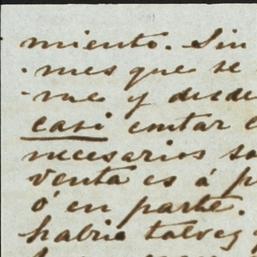 miento. Sin
mes que se
me y desde
casi contar
necesarios
venta es á p
ó en parte.
habria talvez